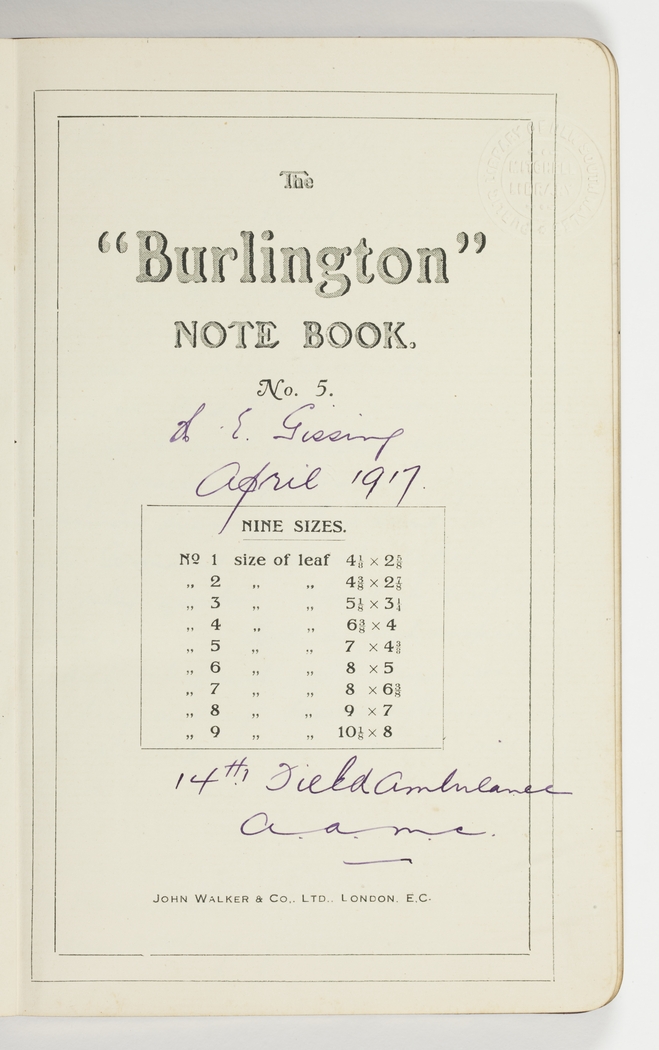 The
“Burlington”
NOTE BOOK.
No. 5.
E. Gissing
April 1917.
NINE SIZES.
No 1 size of leaf 4⅛ × 2⅝
„ 2 „ „ 4⅜ × 2⅞
„ 3 „ „ 5⅛ × 3¼
„ 4 „ „ 6⅜ × 4
„ 5 „ „ 7 × 4⅜
„ 6 „ „ 8 × 5
„ 7 „ „ 8 × 6⅜
„ 8 „ „ 9 × 7
„ 9 „ „ 10⅛ × 8
14th Field Ambulance
a.a.m.c.
JOHN WALKER & CO., LTD., LONDON. E.C.